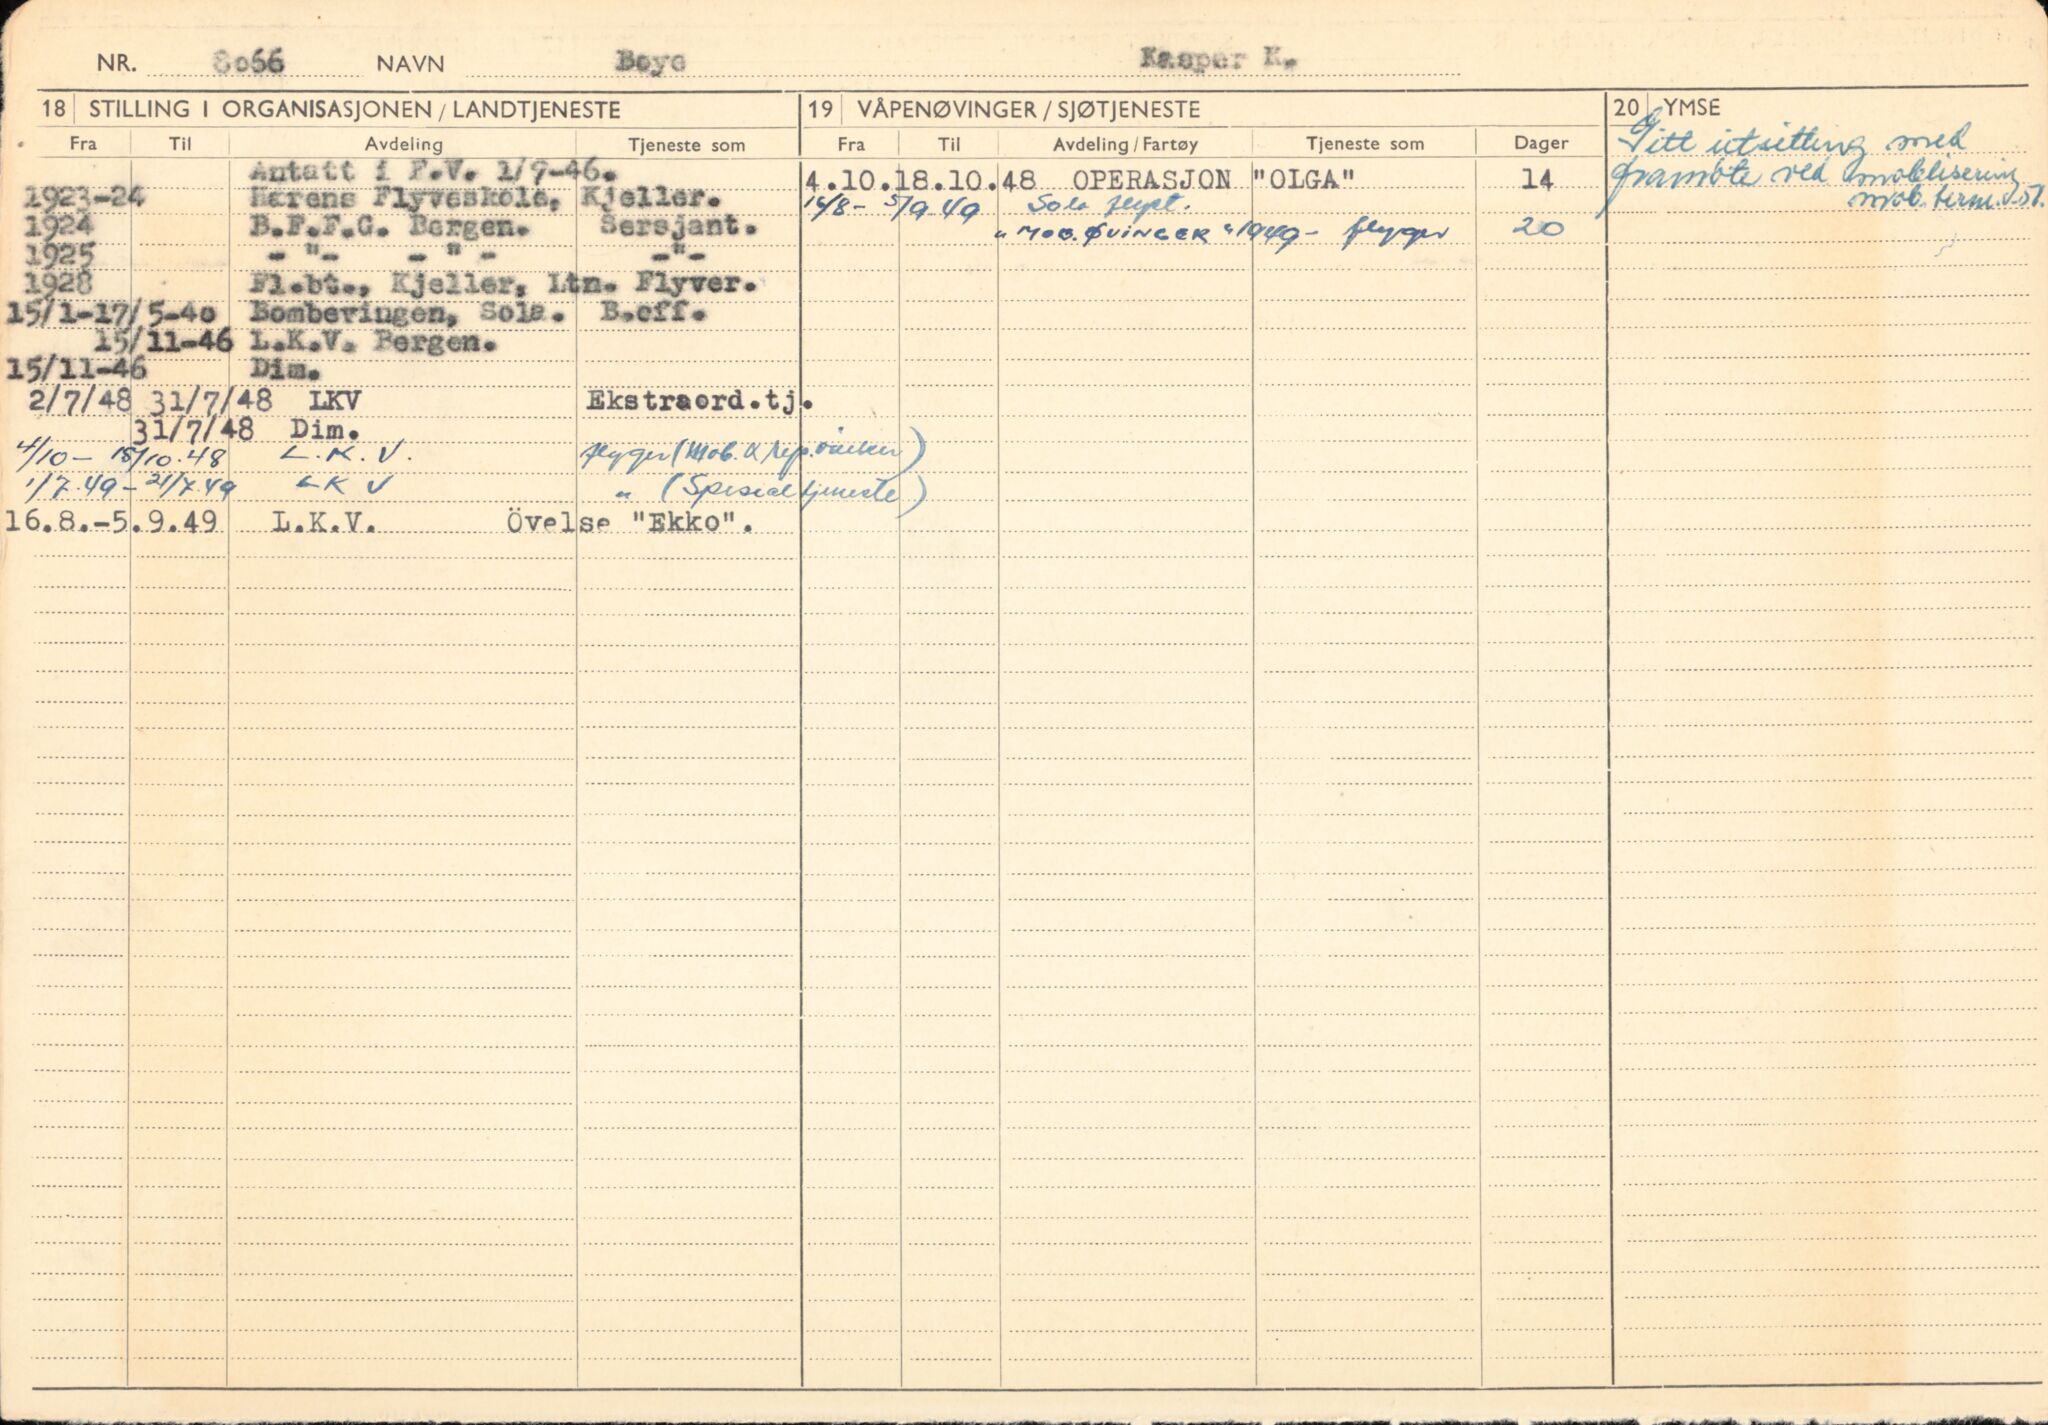 NR. 8066 NAVN Boye Kasper K.
18 STILLING I ORGANISASJONEN / LANDTJENESTE
Fra Til Avdeling Tjeneste som
Antatt i F.V. 1/9-46.
1923-24 Hærens Flyveskole, Kjeller.
1924 B.F.F.G. Bergen. Sersjant.
1925 - " - - " - - " -
1928 Fl.bt., Kjeller, Ltn. Flyver.
15/1-17/5-40 Bombevingen, Sola. B.off.
15/11-46 L.K.V. Bergen.
15/11-46 Dim.
2/7/48 31/7/48 LKV Ekstraord.tj.
31/7/48 Dim.
4/10 - 18/10.48 L.K.V. flyger (Mob. & rep. )
1/7.49 - 21/7.49 LKV " (Spesialtjeneste)
16.8.-5.9.49 L.K.V. Övelse "Ekko".
19 VÅPENØVINGER / SJØTJENESTE
Fra Til Avdeling / Fartøy Tjeneste som Dager
4.10.18.10.48 OPERASJON "OLGA" 14
16/8 - 5/9 49 Sola flypl.
" MOB. ØVINGER " 1949 - flyger 20
20 YMSE
Gitt utsetting med
framöte ved mobilisering
mob. term. V-51.